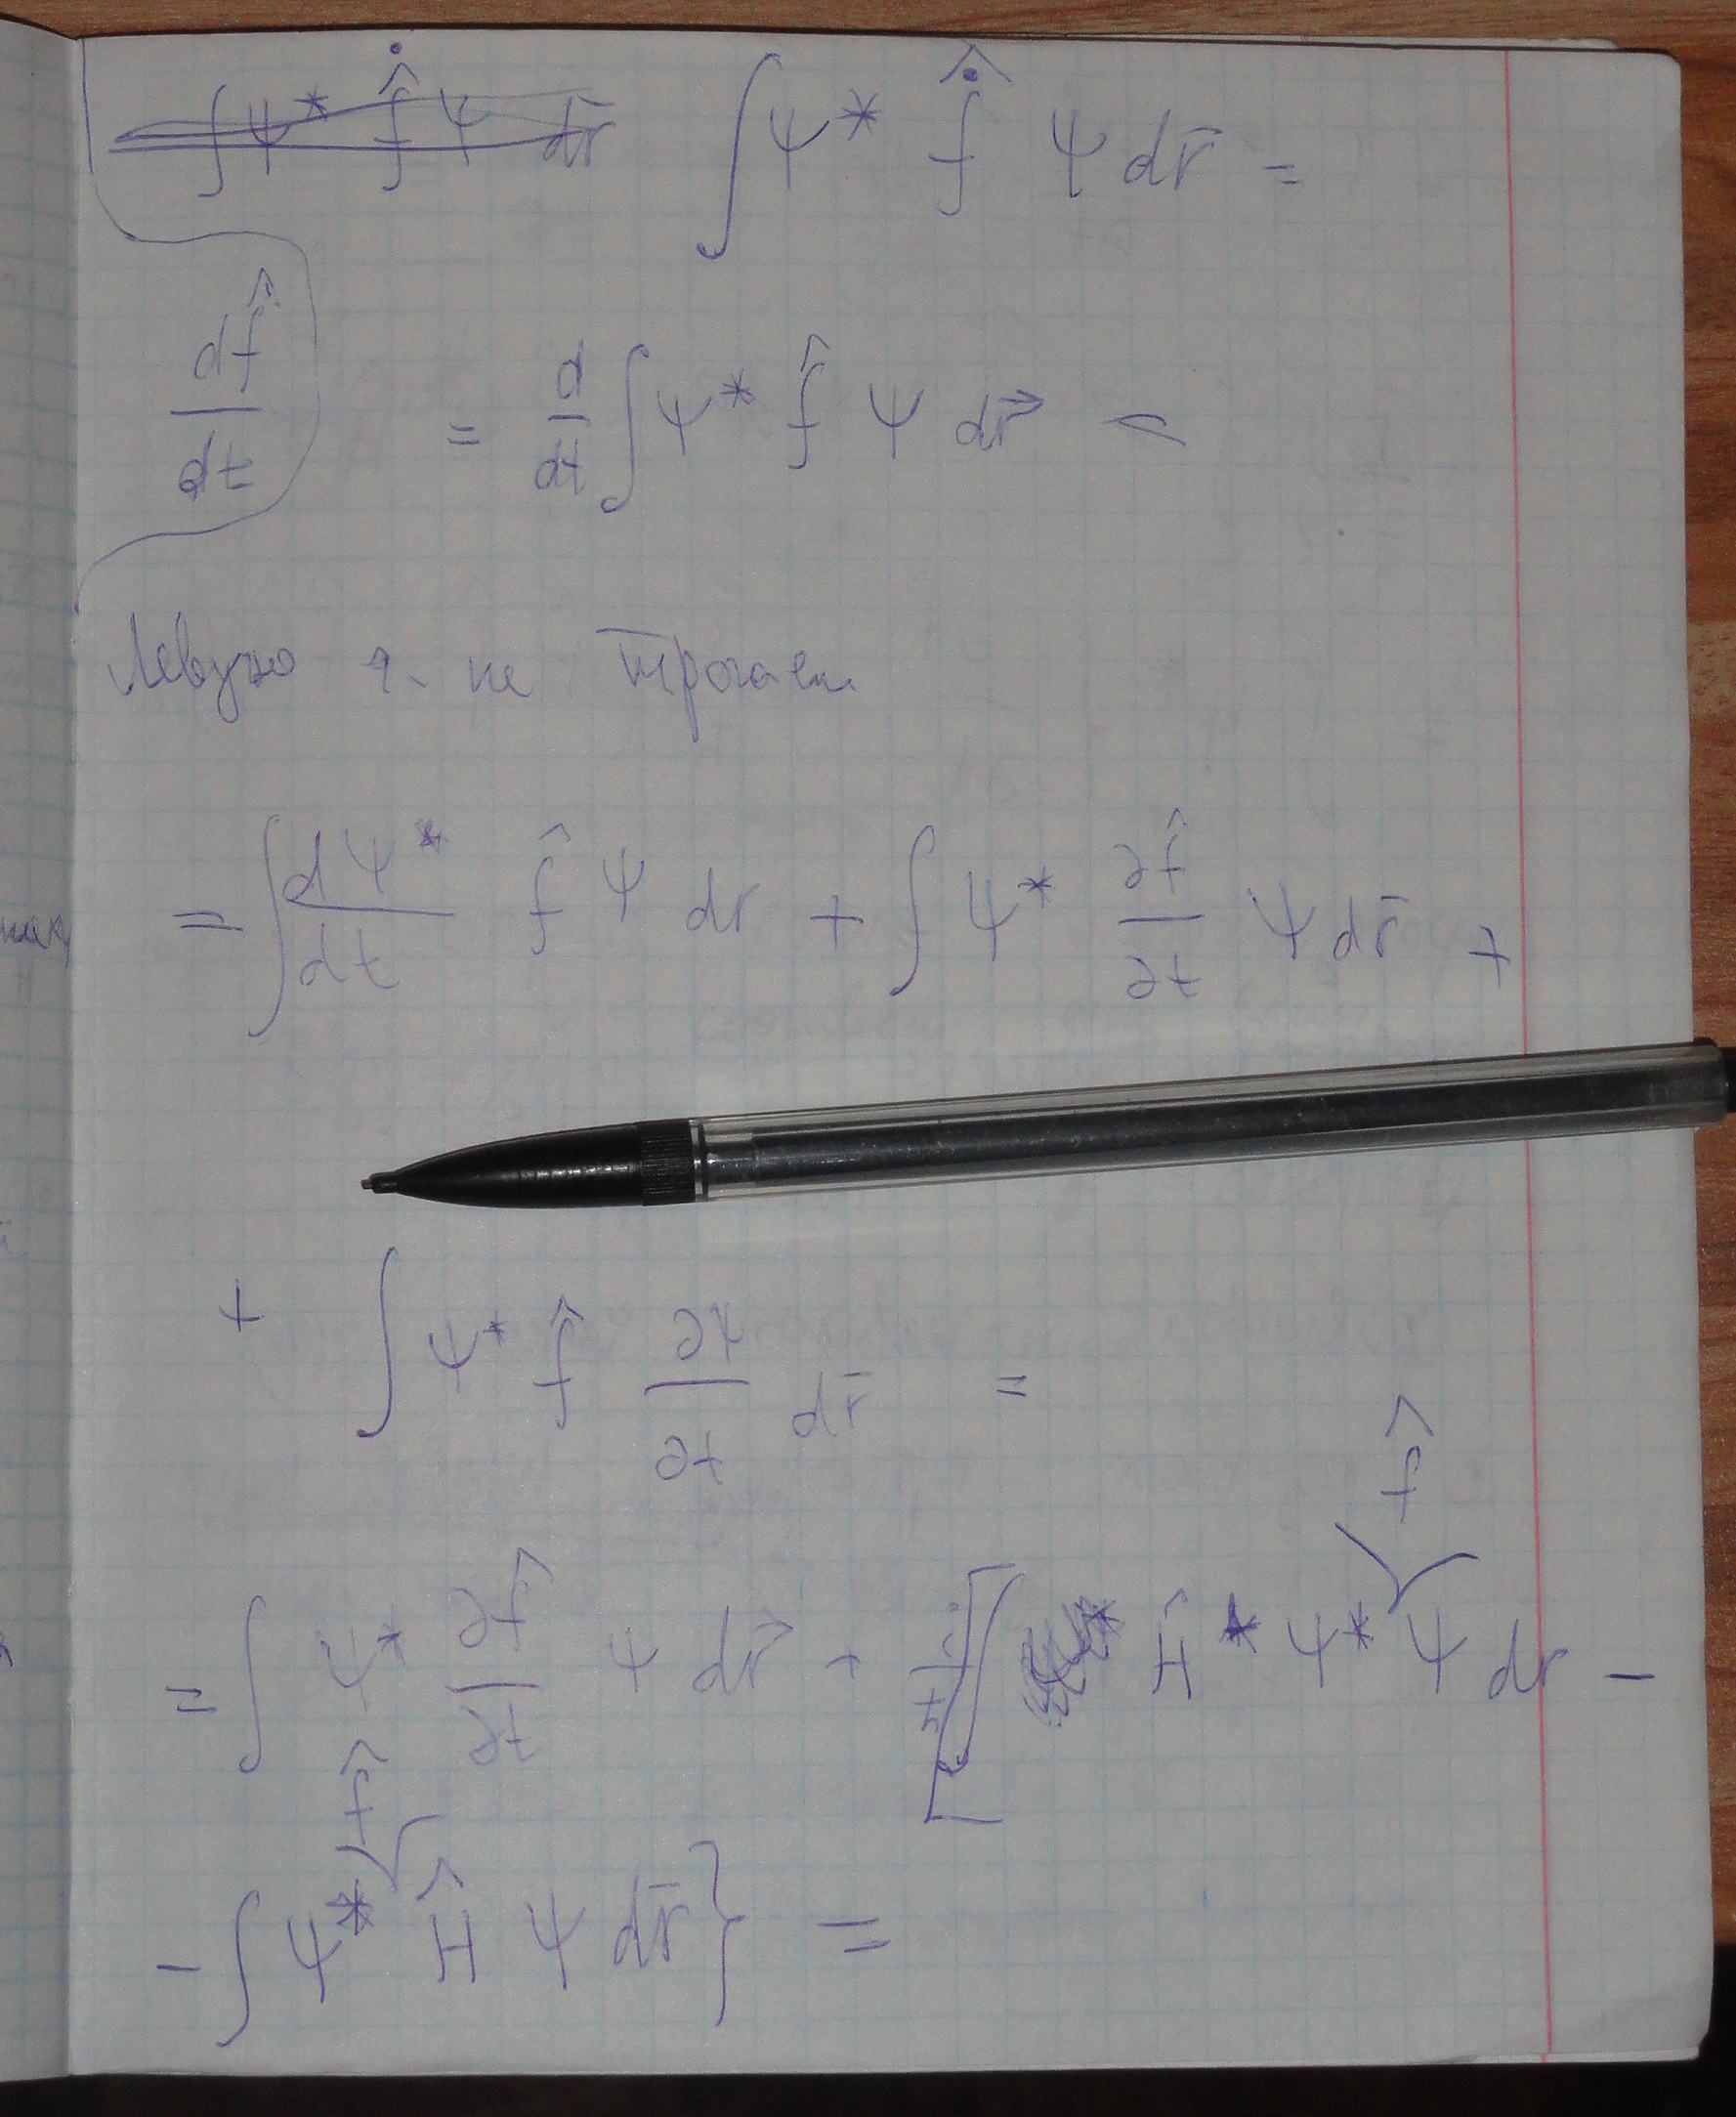 ∫ψ* f̂̇ ψ dr̄ ∫ψ* f̂̇ ψ dr̄ =
df̂/dt = d/dt ∫ψ* f̂ ψ dr⃗ =
Левую ч. не трогаем
= ∫ dψ*/dt f̂ ψ dr + ∫ ψ* ∂f̂/∂t ψ dr̄ +
+ ∫ ψ* f̂ ∂ψ/∂t dr̄ =
= ∫ ψ* ∂f̂/∂t ψ dr⃗ + i/ħ [∫ Ĥ* ψ* f̂ ψ dr −
− ∫ ψ* f̂ Ĥ ψ dr̄} =